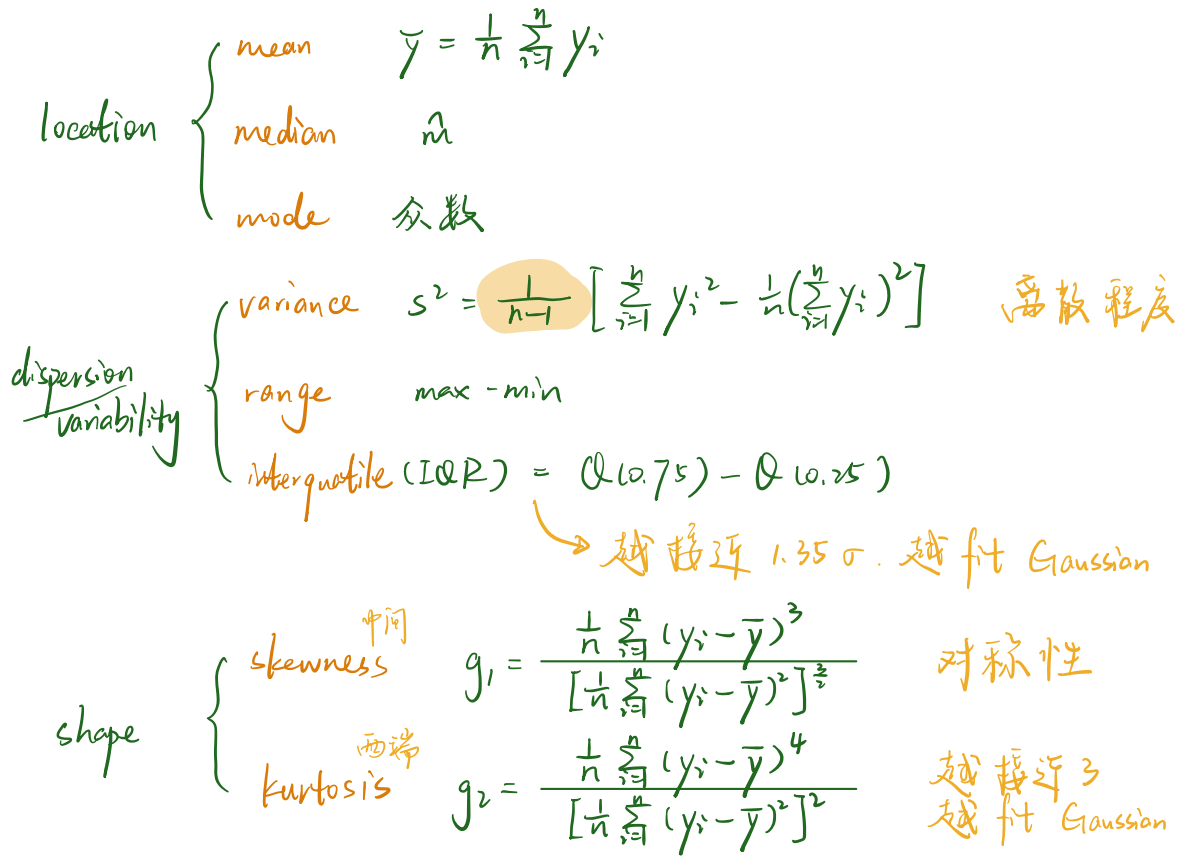 location
mean ȳ = 1/n Σ_{i=1}^{n} y_i
median m̂
mode 众数
dispersion/variability
variance s² = 1/(n-1) [Σ_{i=1}^{n} y_i² - 1/n(Σ_{i=1}^{n} y_i)²] 离散程度
range max - min
interquatile (IQR) = Q(0.75) - Q(0.25)
越接近 1.35σ. 越 fit Gaussian
shape
skewness 中间 g₁ = (1/n Σ_{i=1}^{n} (y_i - ȳ)³) / [1/n Σ_{i=1}^{n} (y_i - ȳ)²]^{3/2} 对称性
kurtosis 两端 g₂ = (1/n Σ_{i=1}^{n} (y_i - ȳ)⁴) / [1/n Σ_{i=1}^{n} (y_i - ȳ)²]² 越接近 3
越 fit Gaussian